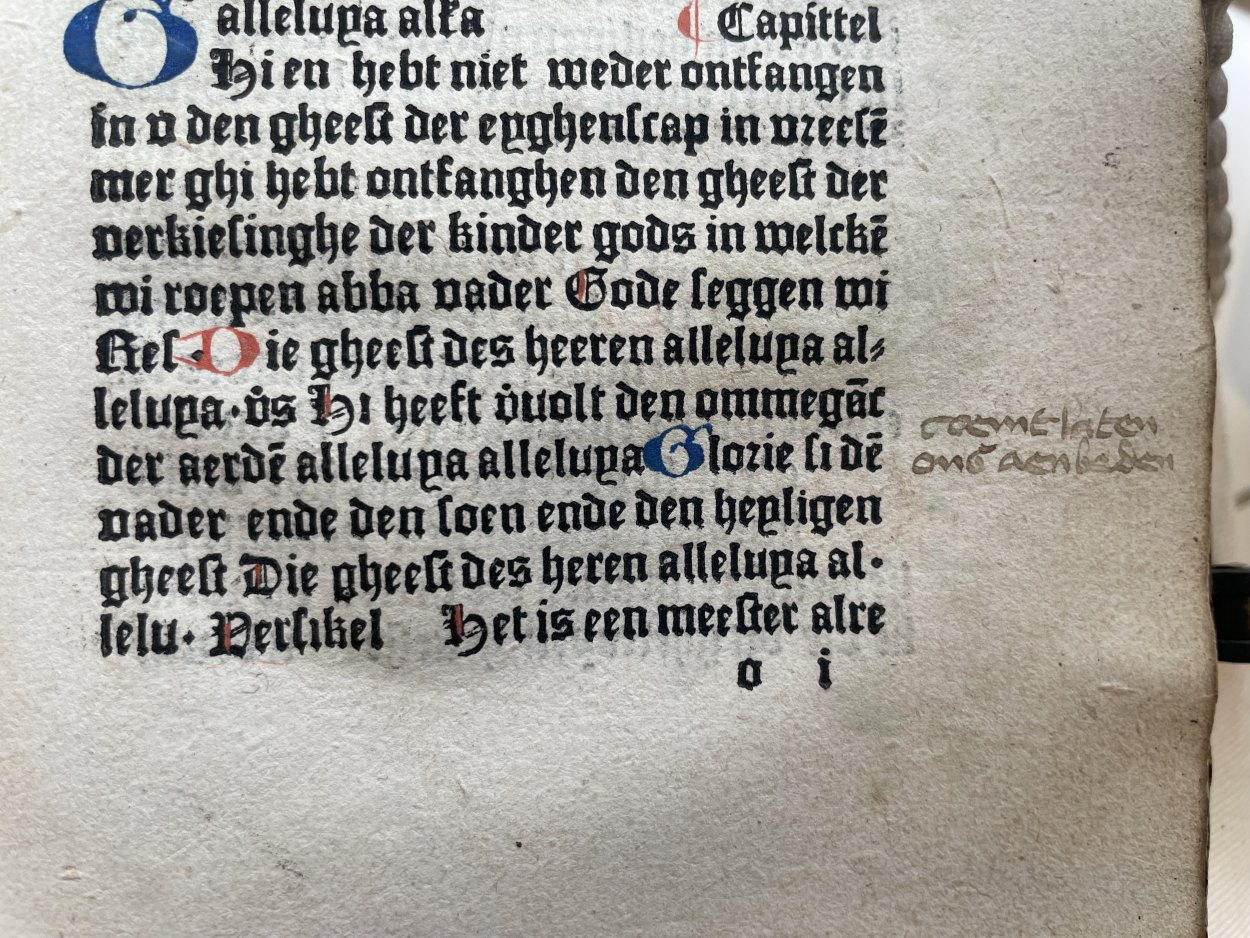 alleluya alfa ¶ Capittel
GHi en hebt niet weder ontfangen
in v den gheest der eyghenscap in vreesē
mer ghi hebt ontfanghen den gheest der
verkiesinghe der kinder gods in welckē
wi roepen abba vader Gode seggen wi
Res. Die gheest des heeren alleluya al⸗
leluya. v̄s Hi heeft v̄uolt den ommegāc
der aerdē alleluya alleluya Glorie si dē
vader ende den soen ende den heyligen
gheest Die gheest des heren alleluya al.
lelu. Versikel Het is een meester alre
o i
coemt laten
ons aenbeden